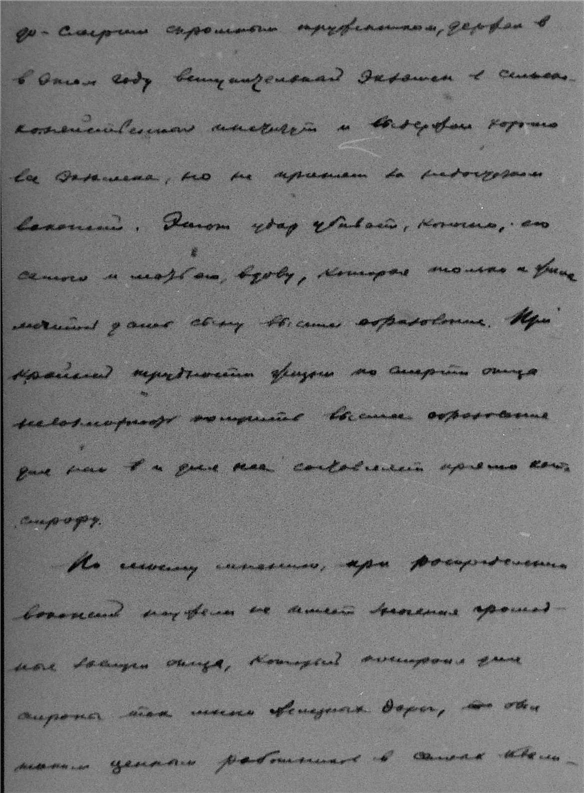 до-смерти скромным тружеником, держал в
в этом году вступительный экзамен в сельско-
хозяйственный институт и выдержал хорошо
все экзамены, но не принят за недостатком
вакансий. Этот удар убивает, конечно, его
самого и мать его, вдову, которая только и
мечтой дать сыну высшее образование. При
крайней трудности жизни по смерти отца
невозможность получить высшее образование
для него и для нее составляет прямо ката-
строфу.
По моему мнению, при распределении
вакансий неужели не имеет значения громад-
ные заслуги отца, который построил для
страны так много железных дорог, что был
таким ценным работником в самых